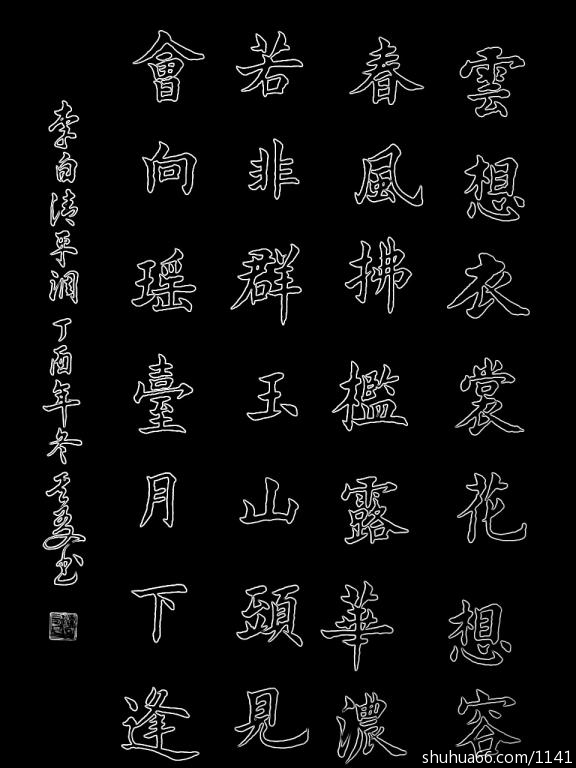 雲想衣裳花想容
春風拂檻露華濃
若非群玉山頭見
會向瑶臺月下逢
李白清平调 丁酉年冬 美书
shuhua66.com/1141